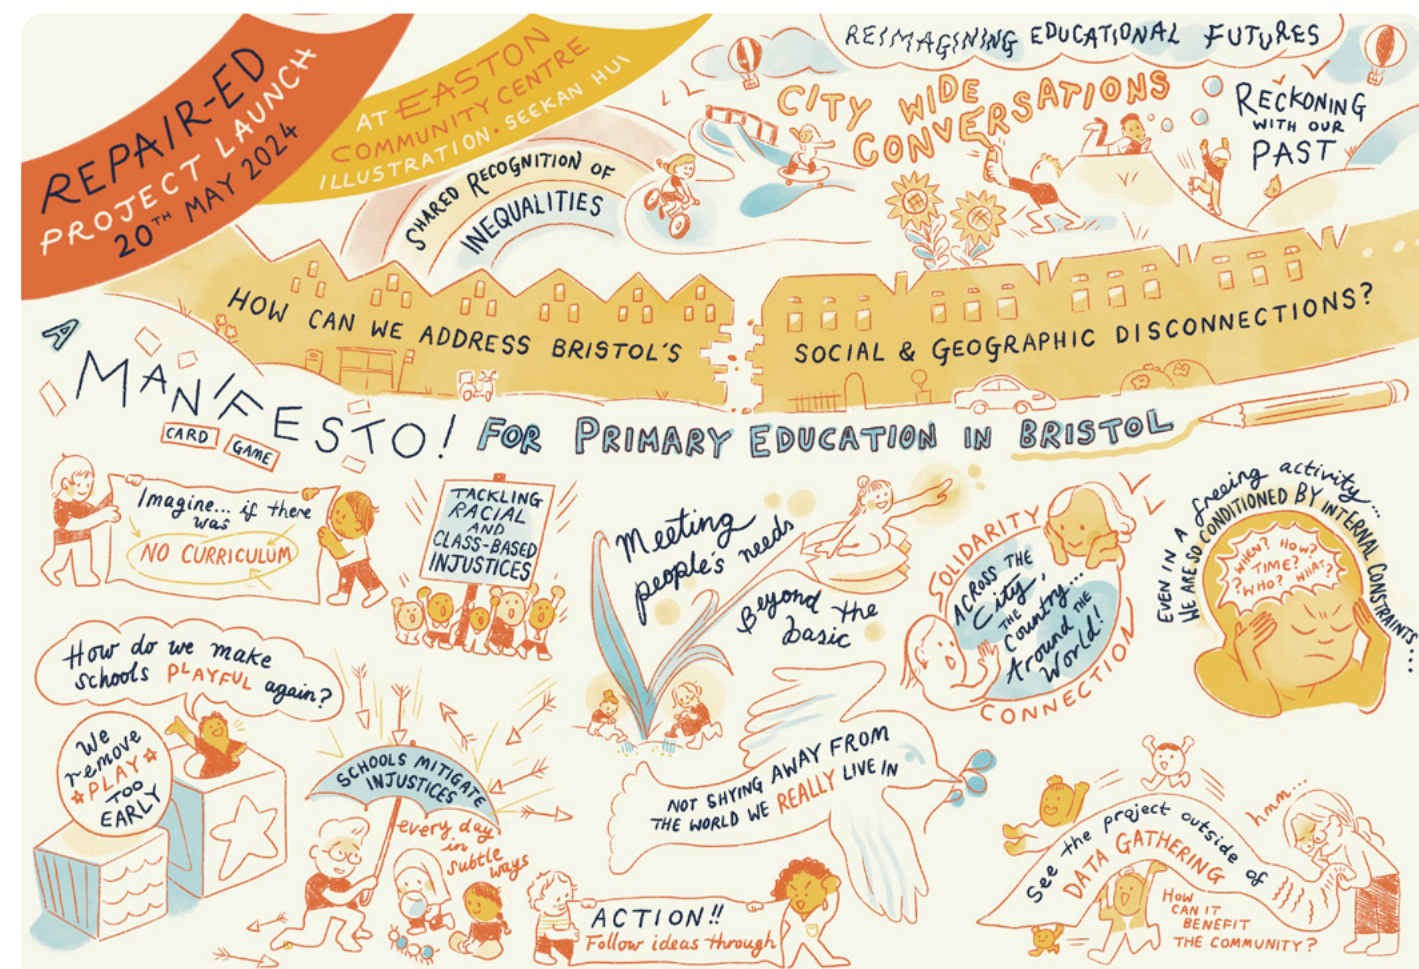 REPAIR-ED
PROJECT LAUNCH
20TH MAY 2024
AT EASTON
COMMUNITY CENTRE
ILLUSTRATION • SEEKAN HUI
REIMAGINING EDUCATIONAL FUTURES
CITY WIDE
CONVERSATIONS
RECKONING
WITH OUR
PAST
SHARED RECOGNITION OF
INEQUALITIES
HOW CAN WE ADDRESS BRISTOL'S
SOCIAL & GEOGRAPHIC DISCONNECTIONS?
A
MANIFESTO!
CARD GAME
FOR PRIMARY EDUCATION IN BRISTOL
Imagine... if there
was
NO CURRICULUM
TACKLING
RACIAL
AND
CLASS-BASED
INJUSTICES
Meeting
people's needs
Beyond the
basic
SOLIDARITY
ACROSS THE
City,
THE
Country...
Around THE
World!
CONNECTION
EVEN IN A freeing activity...
WE ARE SO CONDITIONED BY INTERNAL CONSTRAINTS...
WHEN? HOW?
TIME?
?WHO? WHAT?
How do we make
schools PLAYFUL again?
We
remove
PLAY
TOO
EARLY
SCHOOLS MITIGATE
INJUSTICES
every day
in
subtle
ways
NOT SHYING AWAY FROM
THE WORLD WE REALLY LIVE IN
ACTION!!
Follow ideas through
See the project outside of
DATA GATHERING
hmm...
HOW
CAN IT
BENEFIT
THE COMMUNITY?